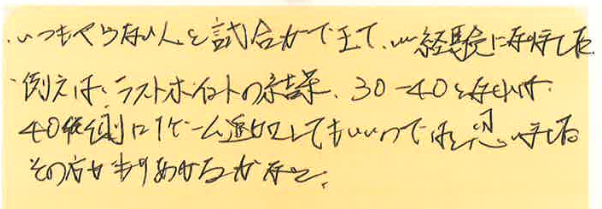 ・いつもやらない人と試合ができて、いい経験になりました
・例えば、ラストポイントの結果、30-40となれば、
40側に1ゲーム追加してもいいのではと思いました
その方がもりあがるかなと。